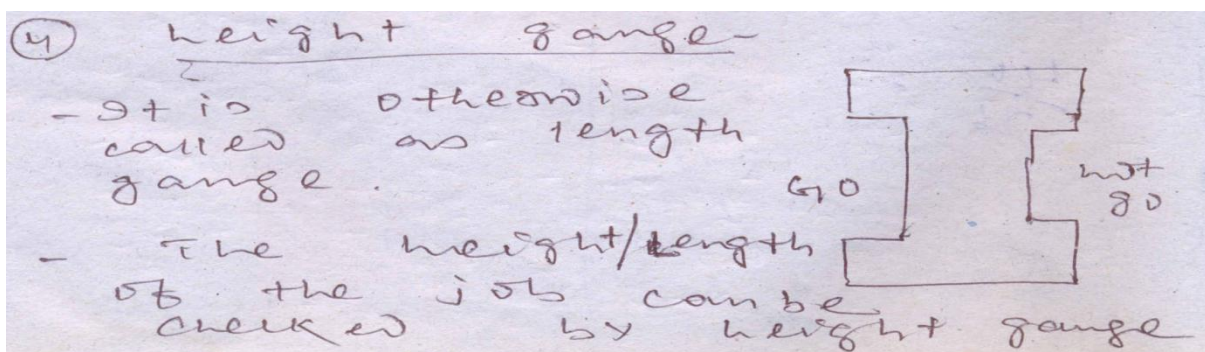 (4) height gauge-
- It is otherwise
called as length
gauge.
GO
not
go
- The height/Length
of the job can be
checked by height gauge